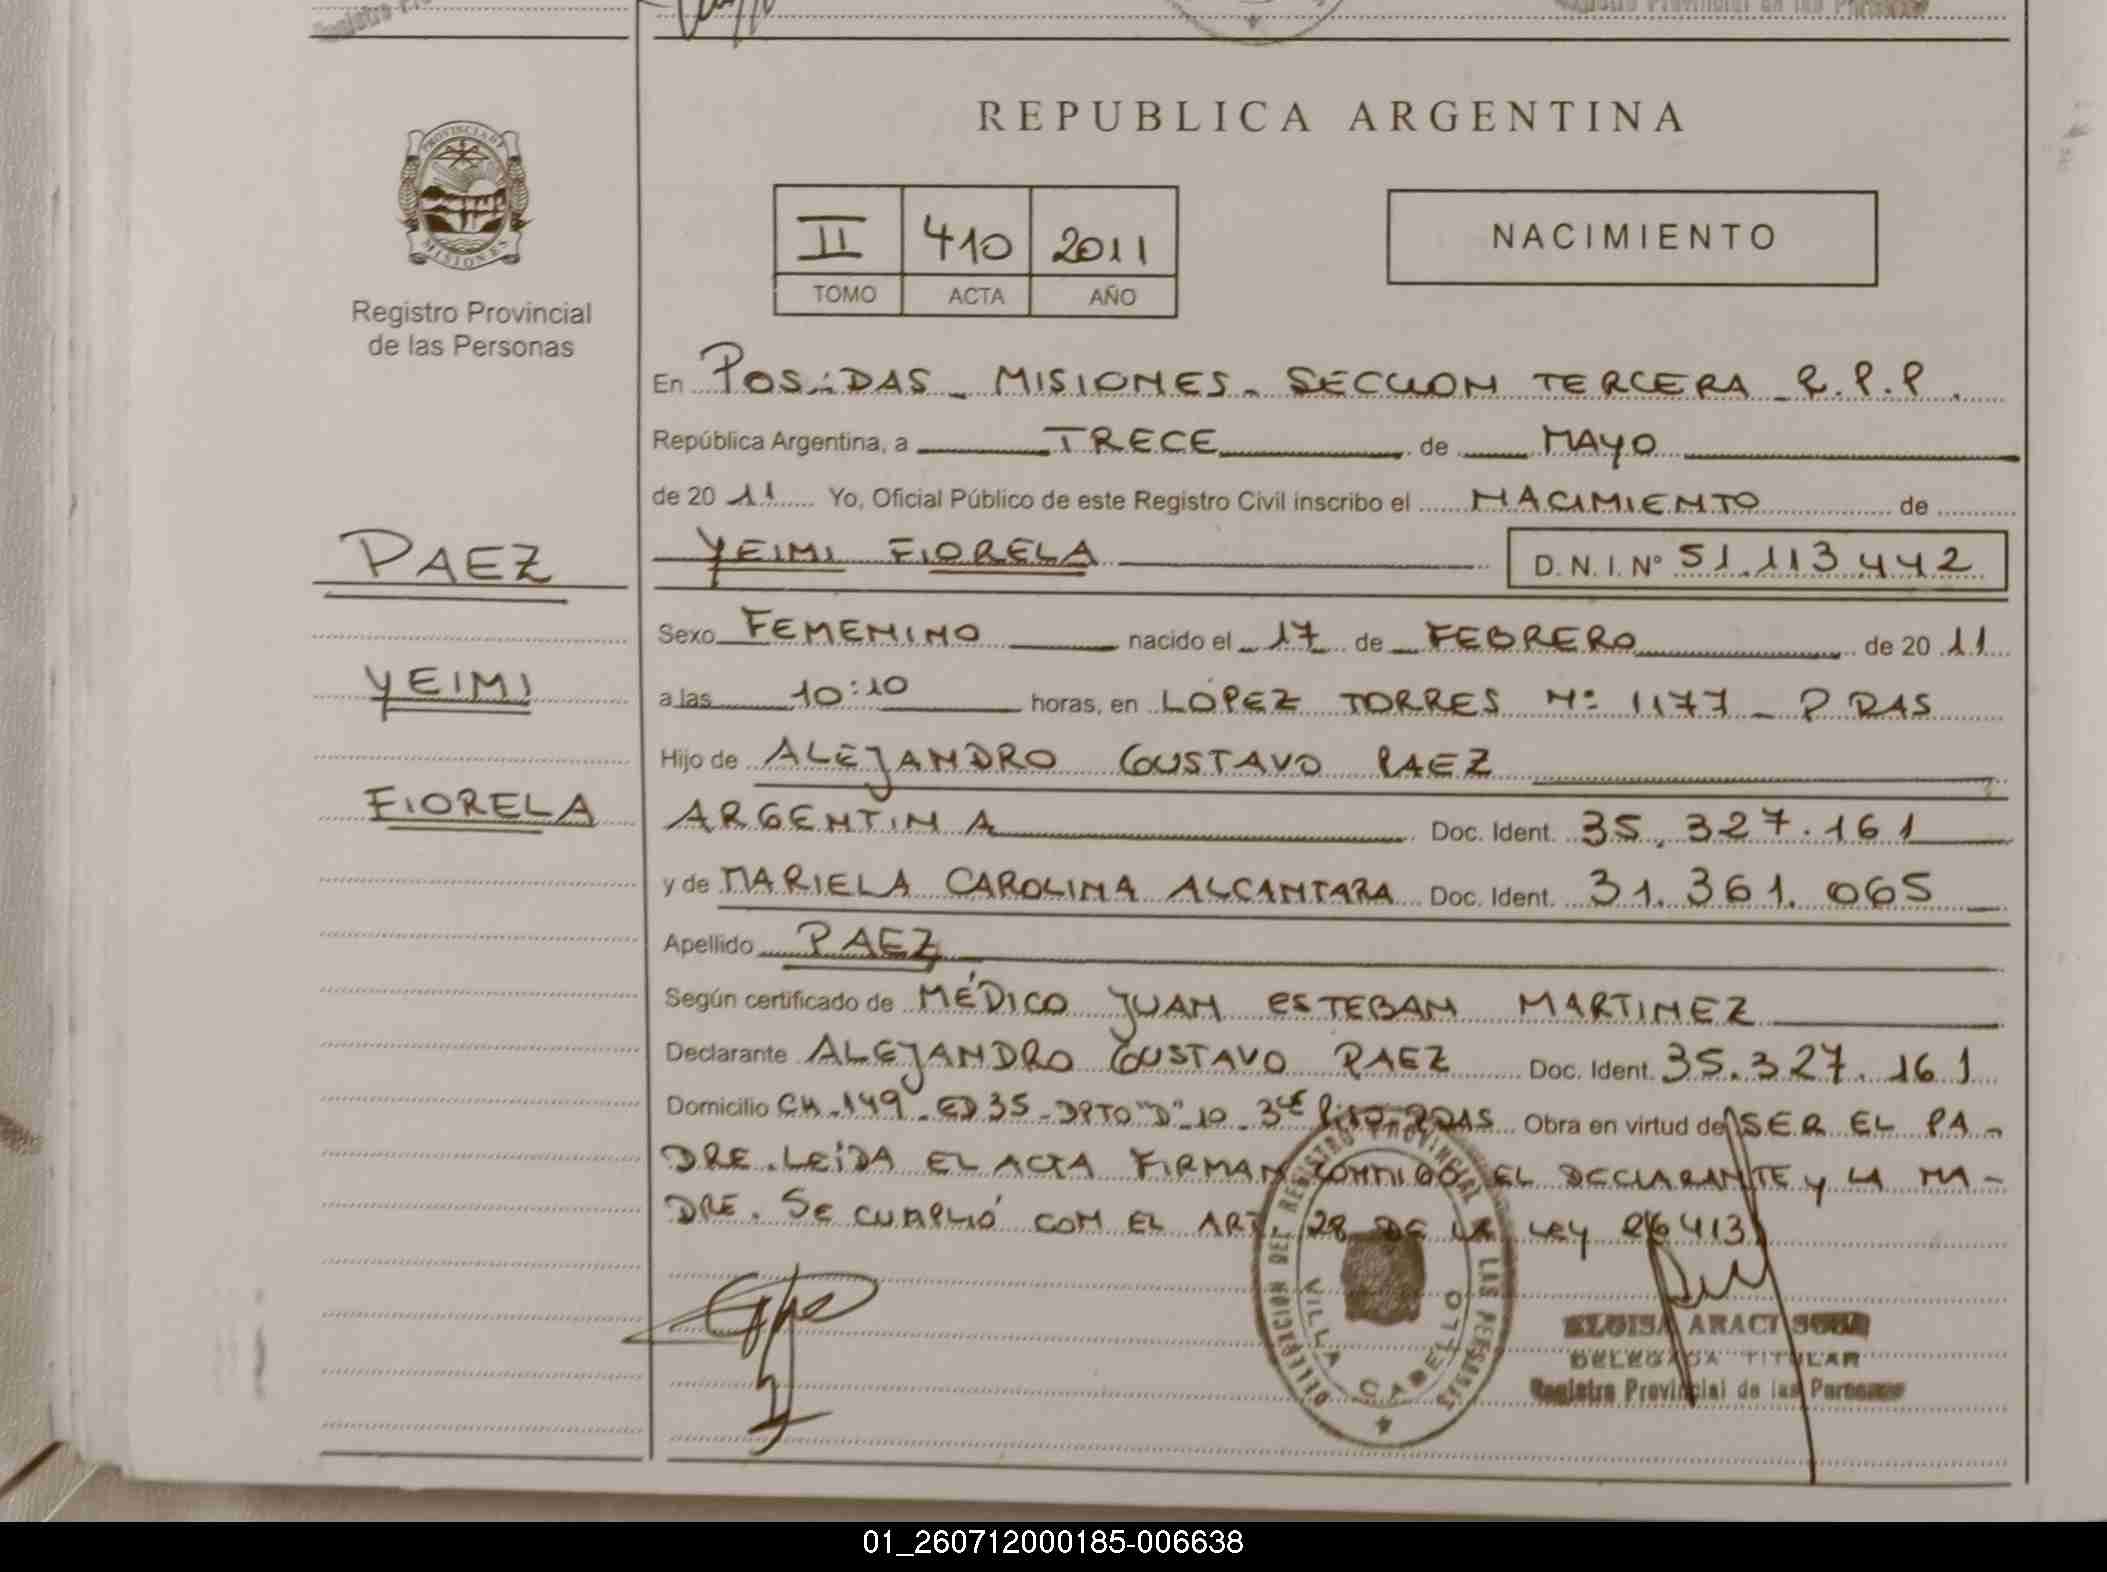 REPUBLICA ARGENTINA
PROVINCIA DE MISIONES
Registro Provincial
de las Personas
II 410 2011
TOMO ACTA AÑO
NACIMIENTO
En POSADAS - MISIONES - SECCION TERCERA - R.P.P.
República Argentina, a TRECE de MAYO
de 20 11 Yo, Oficial Público de este Registro Civil inscribo el NACIMIENTO de
PAEZ
YEIMI FIORELA D.N.I. Nº 51.113.442
Sexo FEMENINO nacido el 17 de FEBRERO de 20 11
YEIMI
a las 10:10 horas, en LOPEZ TORRES Nº 1177 - PDAS
Hijo de ALEJANDRO GUSTAVO PAEZ
FIORELA
ARGENTINA Doc. Ident. 35.327.161
y de MARIELA CAROLINA ALCANTARA Doc. Ident. 31.361.065
Apellido PAEZ
Según certificado de MÉDICO JUAN ESTEBAN MARTINEZ
Declarante ALEJANDRO GUSTAVO PAEZ Doc. Ident. 35.327.161
Domicilio CH.149 - ED 35 - DPTO "D" - 10 - 3er PISO - PDAS Obra en virtud de SER EL PA-
DRE. LEÍDA EL ACTA FIRMAN CONMIGO EL DECLARANTE y LA MA-
DRE. SE CUMPLIÓ CON EL ART 28 DE LA LEY 26413
DELEGACION DEL REGISTRO PROVINCIAL DE LAS PERSONAS
VILLA CABELLO
ELOISA ARACI SOSA
DELEGADA TITULAR
Registro Provincial de las Personas
01_260712000185-006638